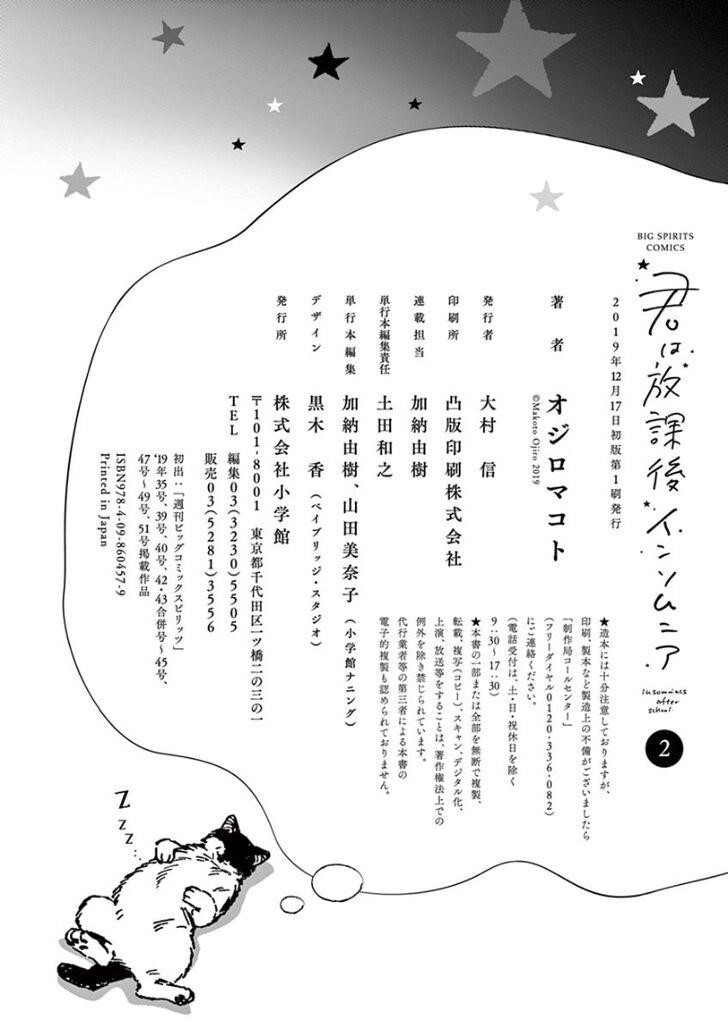 BIG SPIRITS
COMICS
君は放課後インソムニア
Insomniacs
after
school
2
2019年12月17日初版第1刷発行
著者 オジロマコト
©Makoto Ojiro 2019
発行者 大村 信
印刷所 凸版印刷株式会社
連載担当 加納由樹
単行本編集責任 土田和之
単行本編集 加納由樹、山田美奈子(小学館ナニング)
デザイン 黒木 香(ベイブリッジ・スタジオ)
発行所 株式会社小学館
〒101-8001 東京都千代田区一ツ橋二の三の一
TEL 編集03(3230)5505
販売03(5281)3556
初出:「週刊ビッグコミックスピリッツ」
'19年35号、39号、40号、42・43合併号〜45号、
47号〜49号、51号掲載作品
ISBN978-4-09-860457-9
Printed in Japan
★造本には十分注意しておりますが、
印刷、製本など製造上の不備がございましたら
「制作局コールセンター」
(フリーダイヤル0120-336-082)
にご連絡ください。
(電話受付は、土・日・祝休日を除く
9:30〜17:30)
★本書の一部または全部を無断で複製、
転載、複写(コピー)、スキャン、デジタル化、
上演、放送等をすることは、著作権法上での
例外を除き禁じられています。
代行業者等の第三者による本書の
電子的複製も認められておりません。
ZZZ...